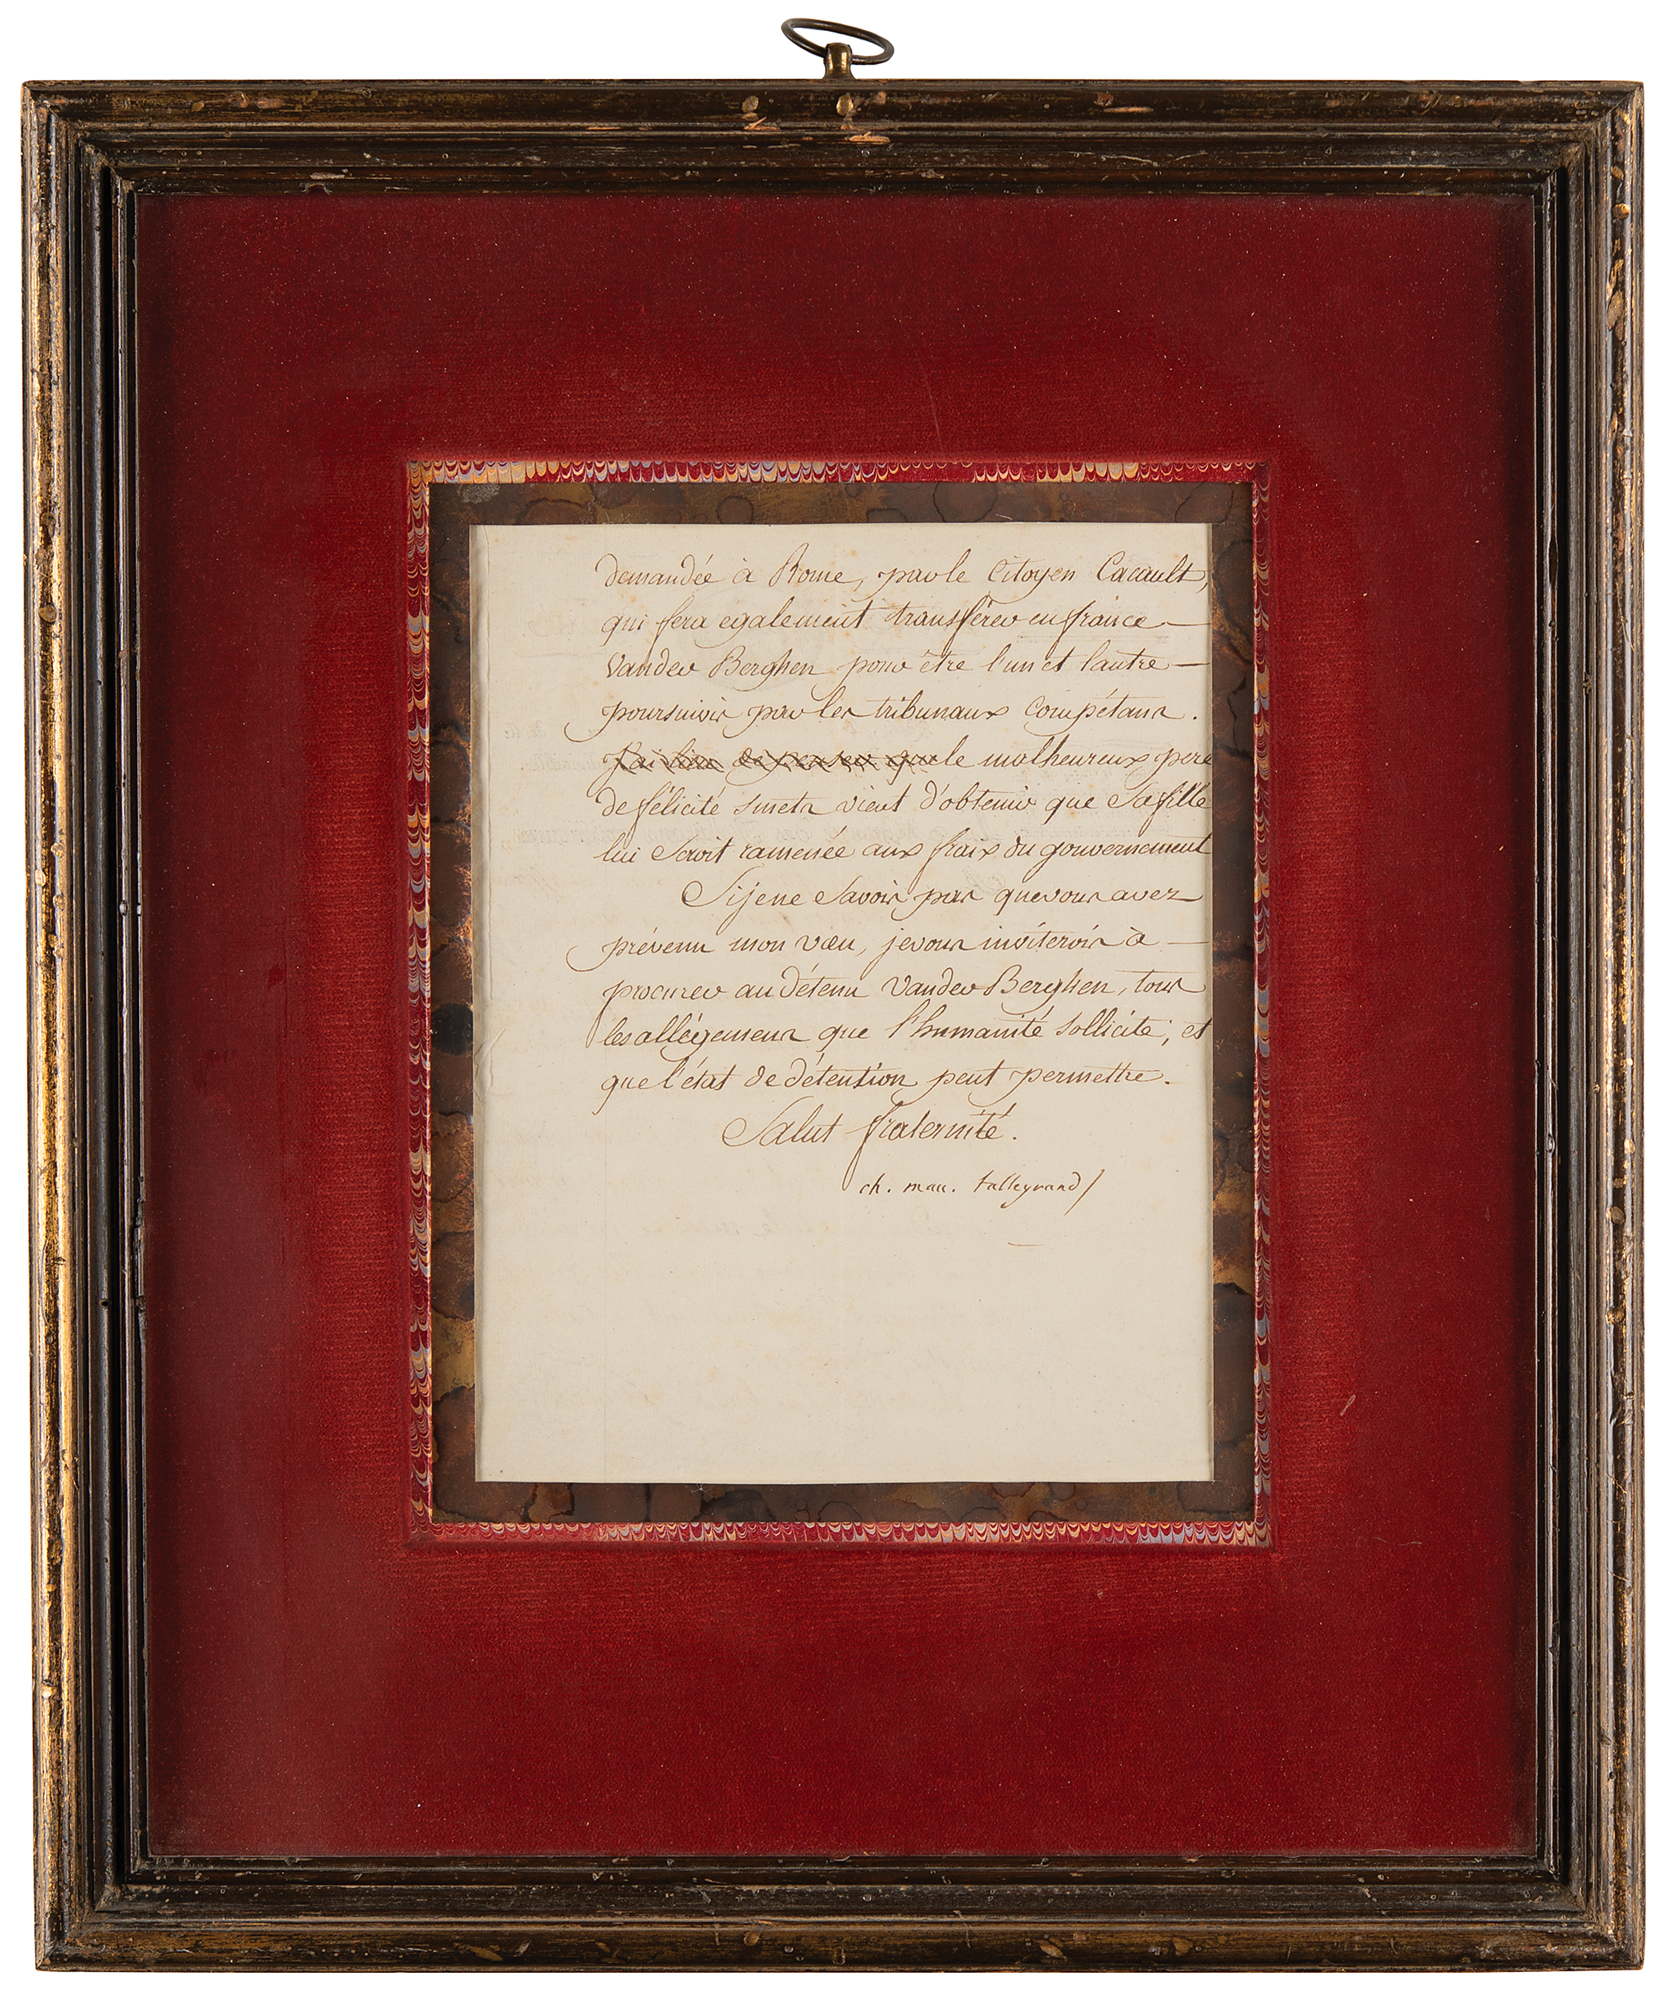 demandée à Rome, par le Citoyen Cacault,
qui fera egalement transférer en france —
Vander Berghen pour être l'un et lautre —
poursuivis par les tribunaux Compétans.
J'ai lieu de penser que le malheureux pere
de félicité Smets vient d'obtenir que Sa fille
lui Seroit ramenée aux fraix du gouvernement
Si je ne Savois pas que vous avez
prévenu mon vœu, je vous inviterois à —
procurer au détenu Vander Berghen, tous
les allégemens que l'humanité sollicite, et
que l'état de détention peut permettre.
Salut fraternité.
ch. mau. talleyrand